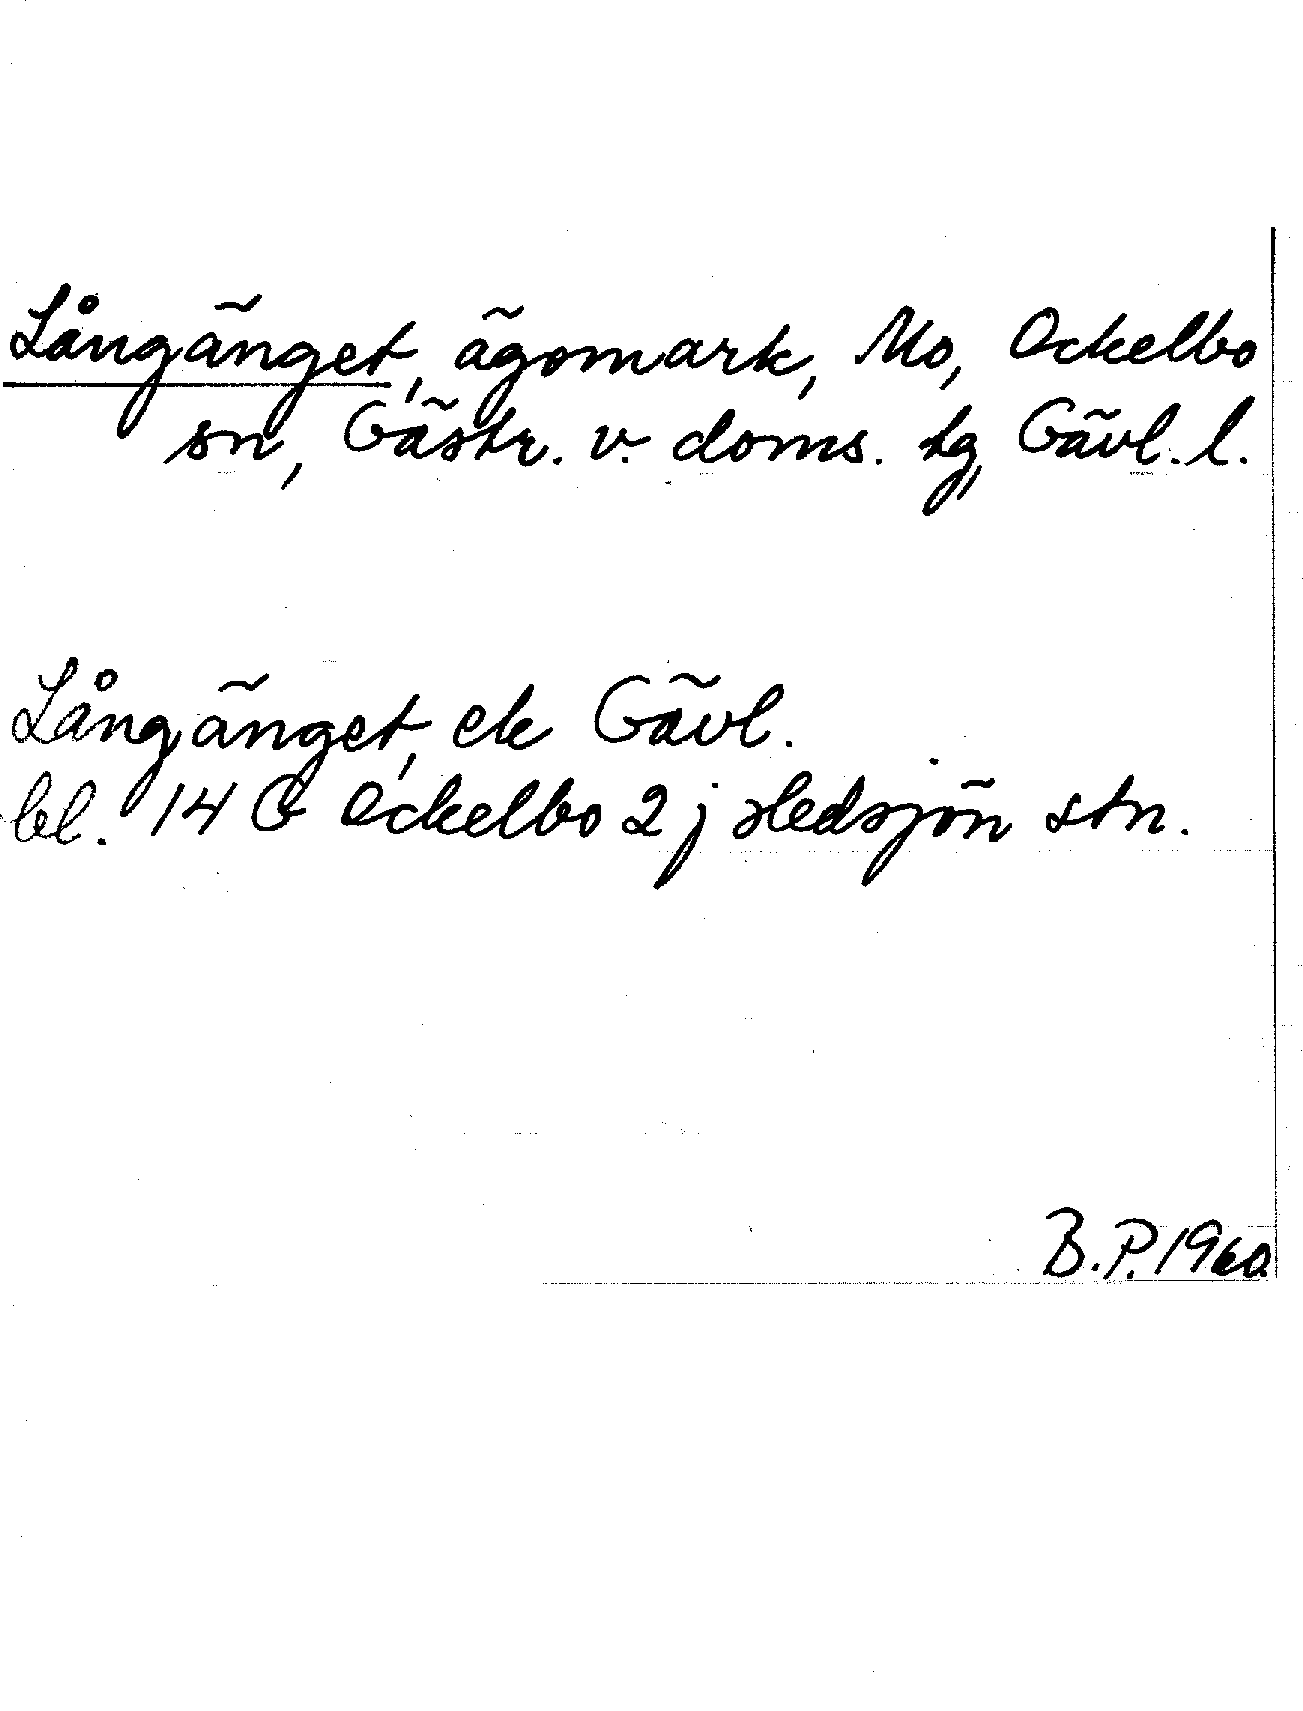 Långänget, ägomark, Mo, Ockelbo
sn, Gästr. v. doms. tg, Gävl. l.
Långänget, ek Gävl.
bl. 14 G Ockelbo 2 j Hedsjön stn.
B.P. 1960.